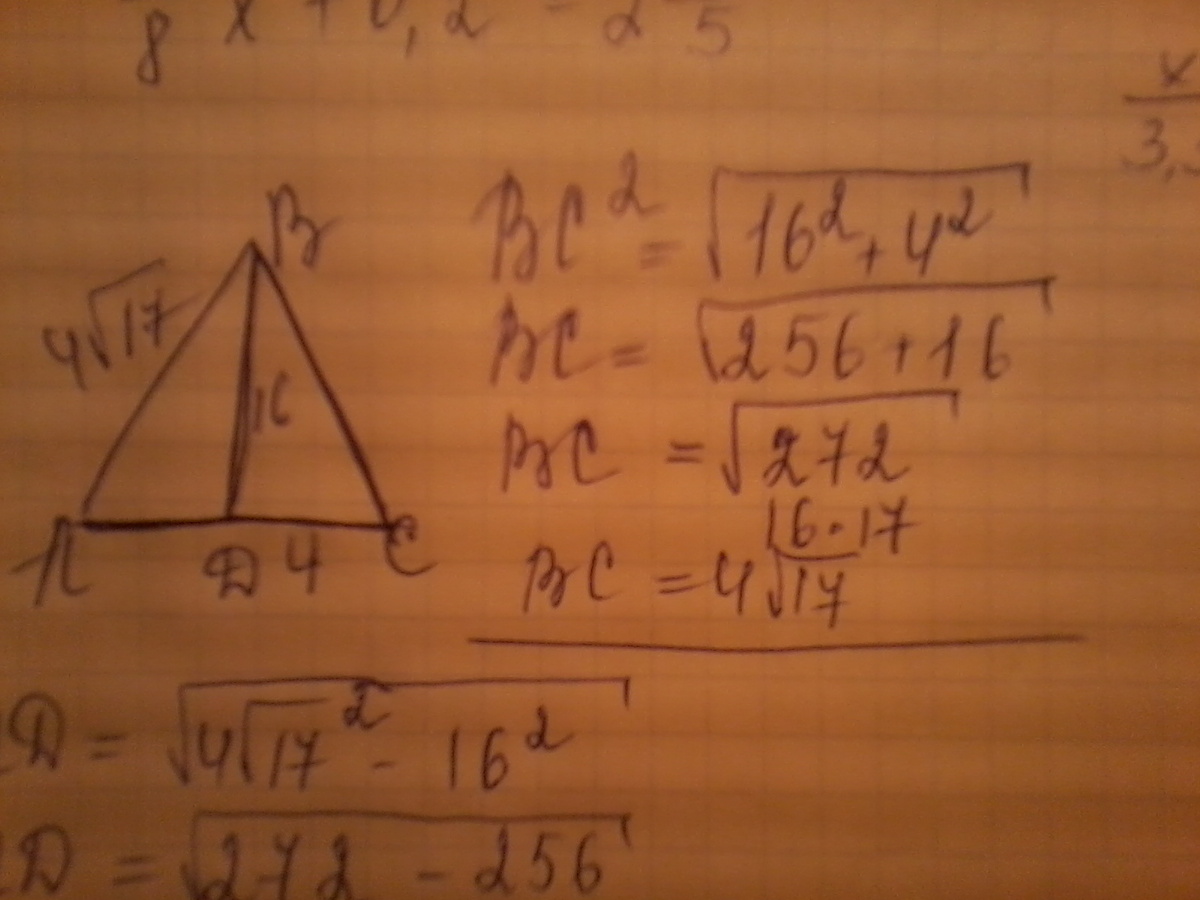 8 x + 0,2 = 2 5
x
3,
B
4√17
16
A D 4 C
BC² = √16² + 4²
BC = √256 + 16
BC = √272
16 · 17
BC = 4√17
D = √4√17² - 16²
D = √272 - 256